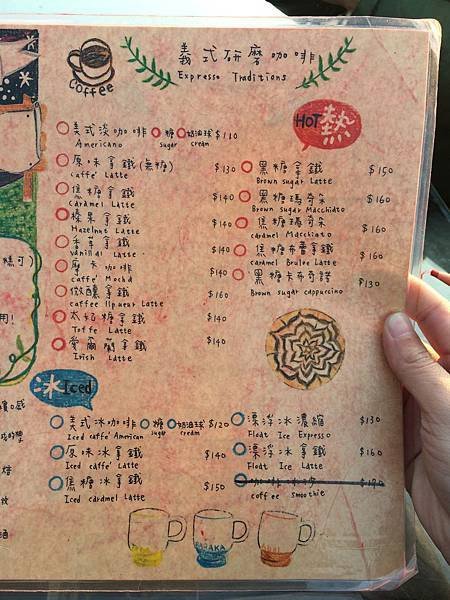 Coffee
義式研磨咖啡
Expresso Traditions
HOT 熱
美式淡咖啡 糖 奶油球 $110
Americano sugar cream
原味拿鐵(無糖) $130
caffe' Latte
焦糖拿鐵 $140
caramel Latte
榛果拿鐵 $140
Hazelnut Latte
香草拿鐵 $140
vanilla Latte
摩卡咖啡 $140
Caffe' Mocha
微醺拿鐵 $160
caffee liqueur Latte
太妃糖拿鐵 $140
Toffe Latte
愛爾蘭拿鐵 $140
Irish Latte
黑糖拿鐵 $150
Brown sugar Latte
黑糖瑪奇朵 $160
Brown sugar Macchiato
焦糖瑪奇朵 $160
caramel Macchiato
焦糖布蕾拿鐵 $160
caramel Brulee Latte
黑糖卡布奇諾 $130
Brown sugar cappuccino
冰 Iced
美式冰咖啡 糖 奶油球 $120
Iced caffe' American sugar cream
原味冰拿鐵 $140
Iced caffe' Latte
焦糖冰拿鐵 $150
Iced caramel Latte
漂浮冰濃縮 $130
Float Ice Expresso
漂浮冰拿鐵 $160
Float Ice Latte
咖啡冰沙 $190
coffee smoothie
BARAKA
糕可)
用!
口感
焙
酒